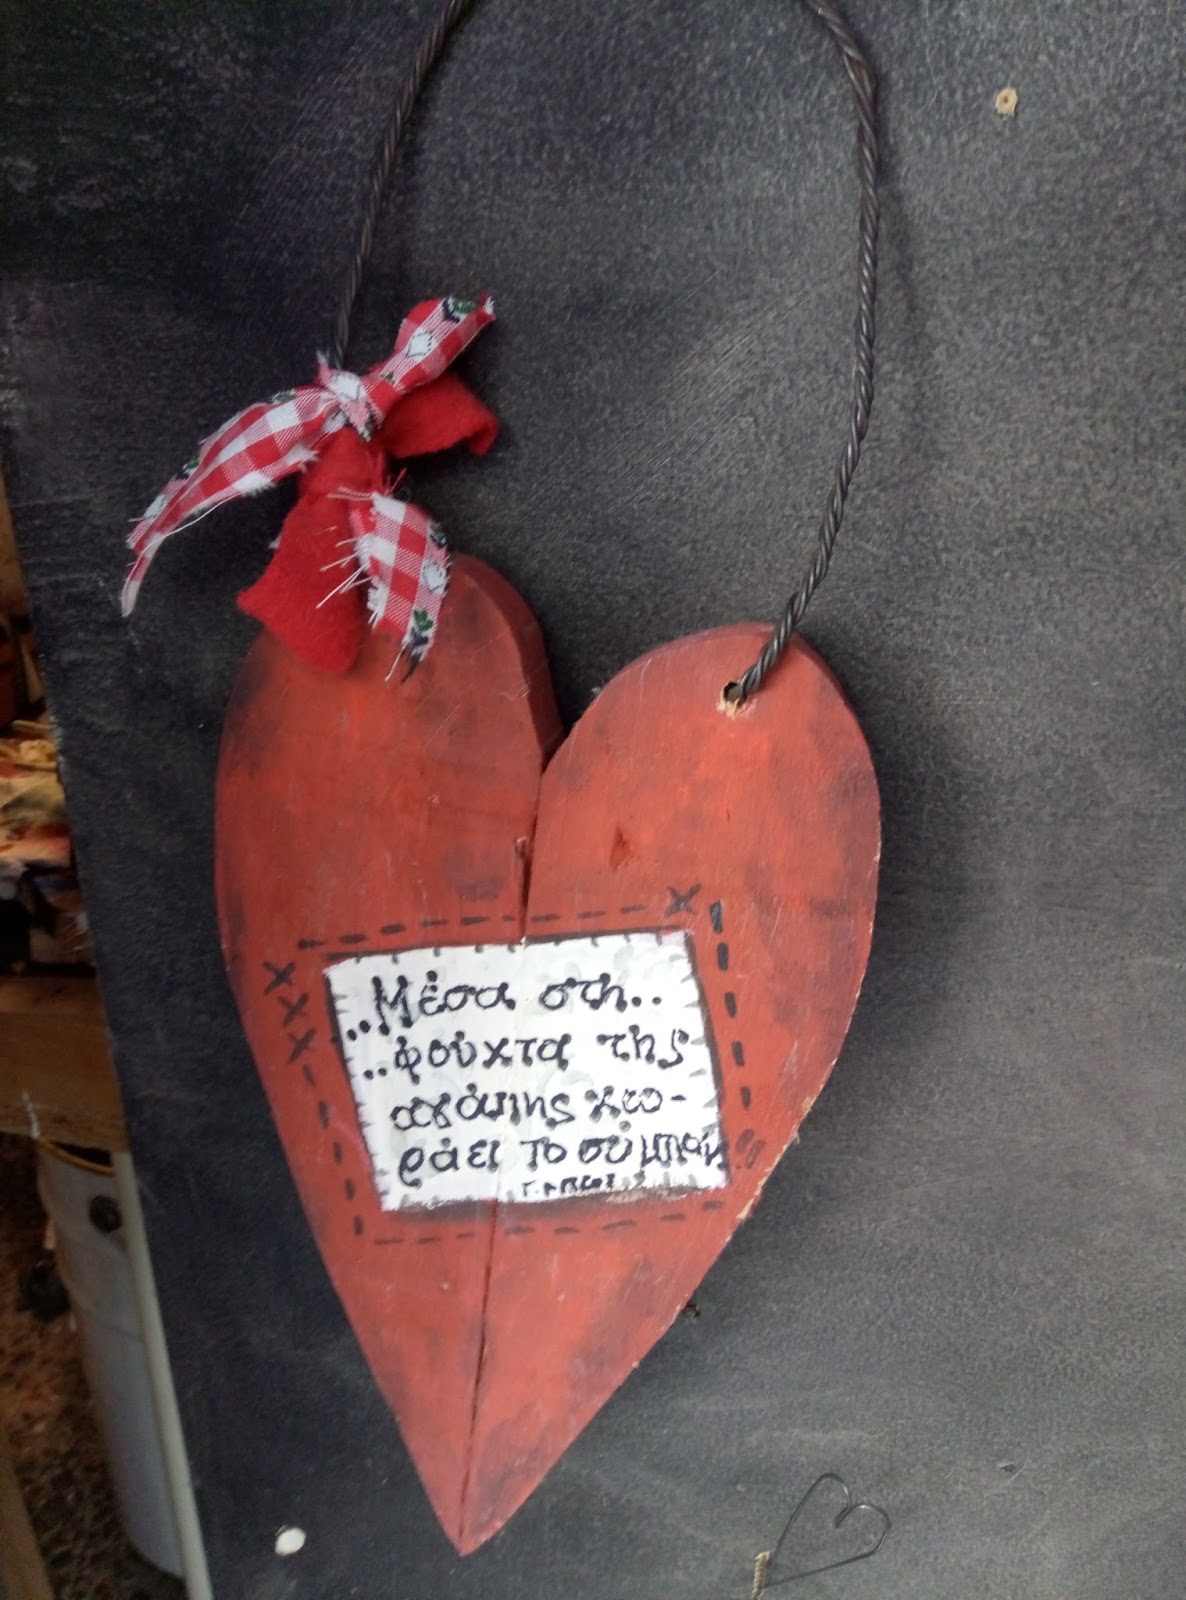 ..Μέσα στη..
..φούχτα της
αγάπης χω-
ράει το σύμπαν
Γ. Ρίτσος